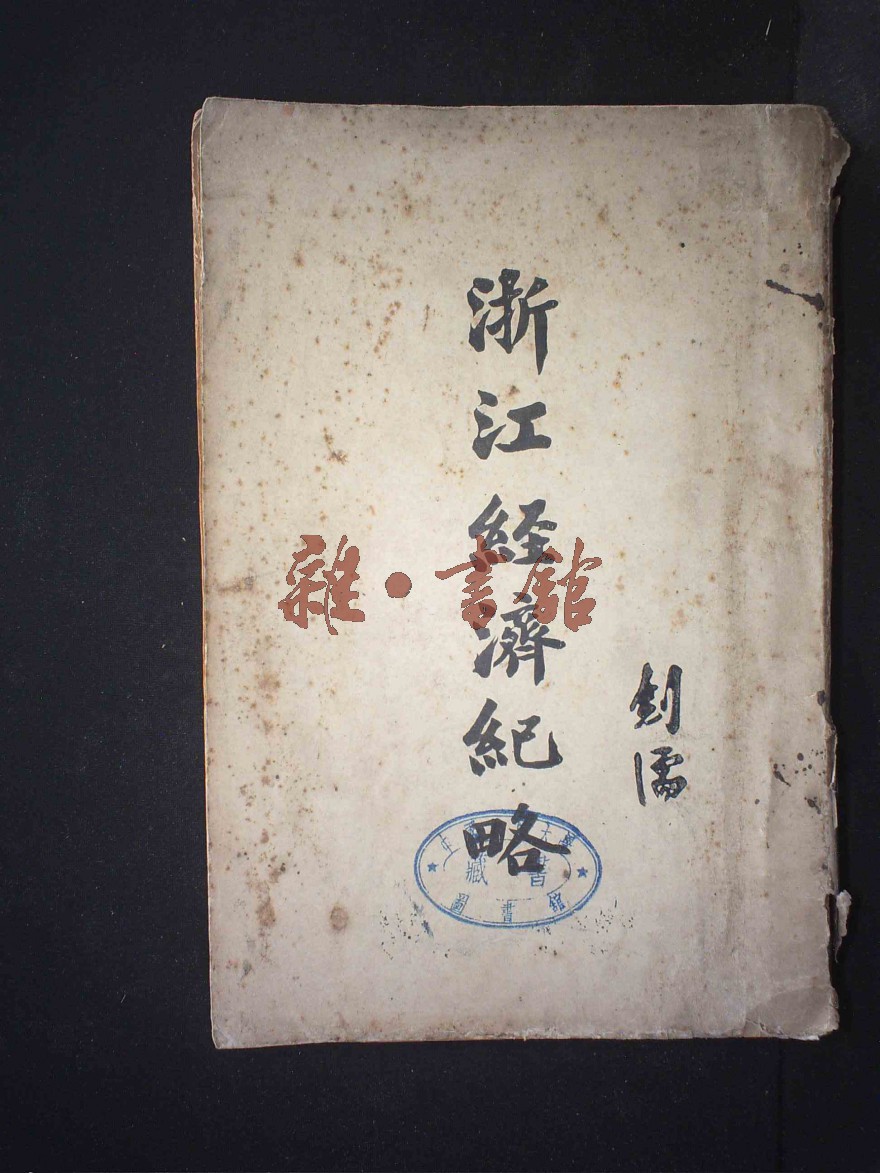 浙江経濟紀略
釗濡
雜·書館
大學
藏書
圖書館